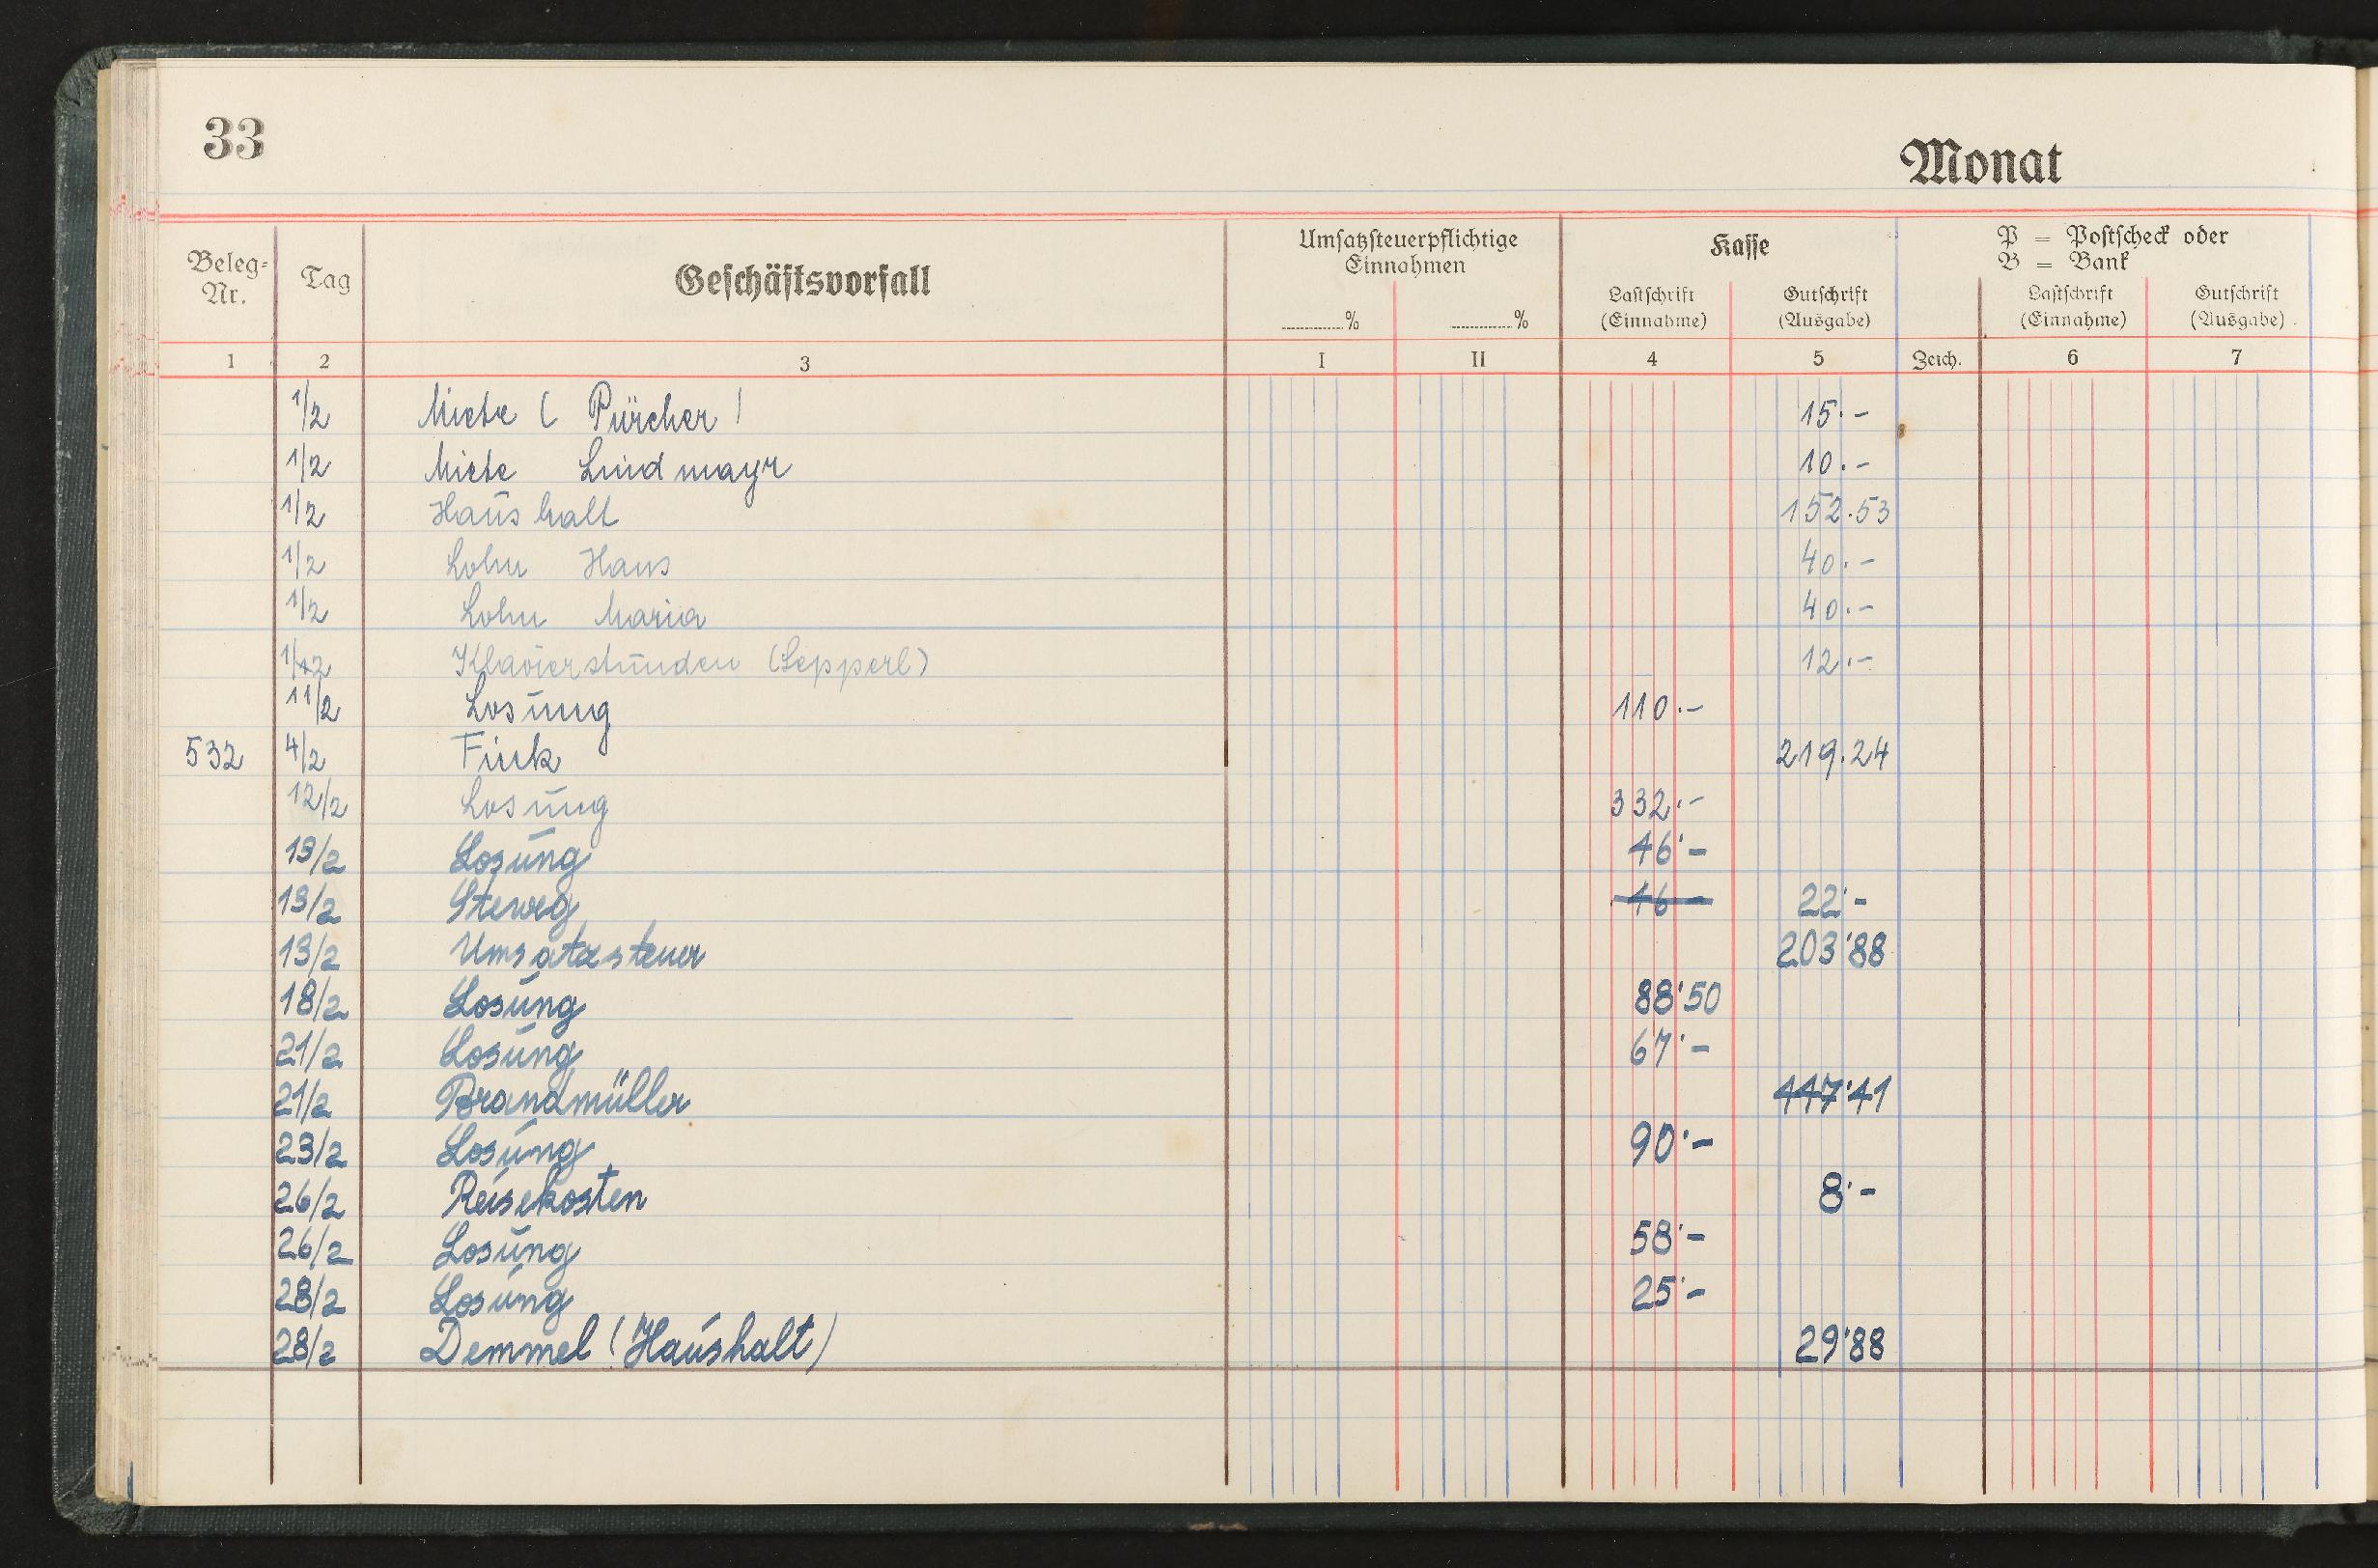 33
Monat
Beleg-Nr. Tag Geschäftsvorfall Umsatzsteuerpflichtige Einnahmen Kasse P = Postscheck oder B = Bank
% % Lastschrift (Einnahme) Gutschrift (Ausgabe) Lastschrift (Einnahme) Gutschrift (Ausgabe)
1 2 3 I II 4 5 Zeich. 6 7
1/2 Miete ( Pürcher ) 15.-
1/2 Miete Lindmayr 10.-
1/2 Haushalt 152.53
1/2 Lohn Hans 40.-
1/2 Lohn Maria 40.-
Klavierstunden (Sepperl) 12.-
11/2 Losung 110.-
532 4/2 Fink 219.24
12/2 Losung 332.-
13/2 Losung 46'-
13/2 Steweg 46 - 22'-
13/2 Umsatzsteuer 203'88
18/2 Losung 88'50
21/2 Losung 67'-
21/2 Brandmüller 447'41
23/2 Losung 90'-
26/2 Reisekosten 8'-
26/2 Losung 58'-
28/2 Losung 25'-
28/2 Demmel (Haushalt) 29'88